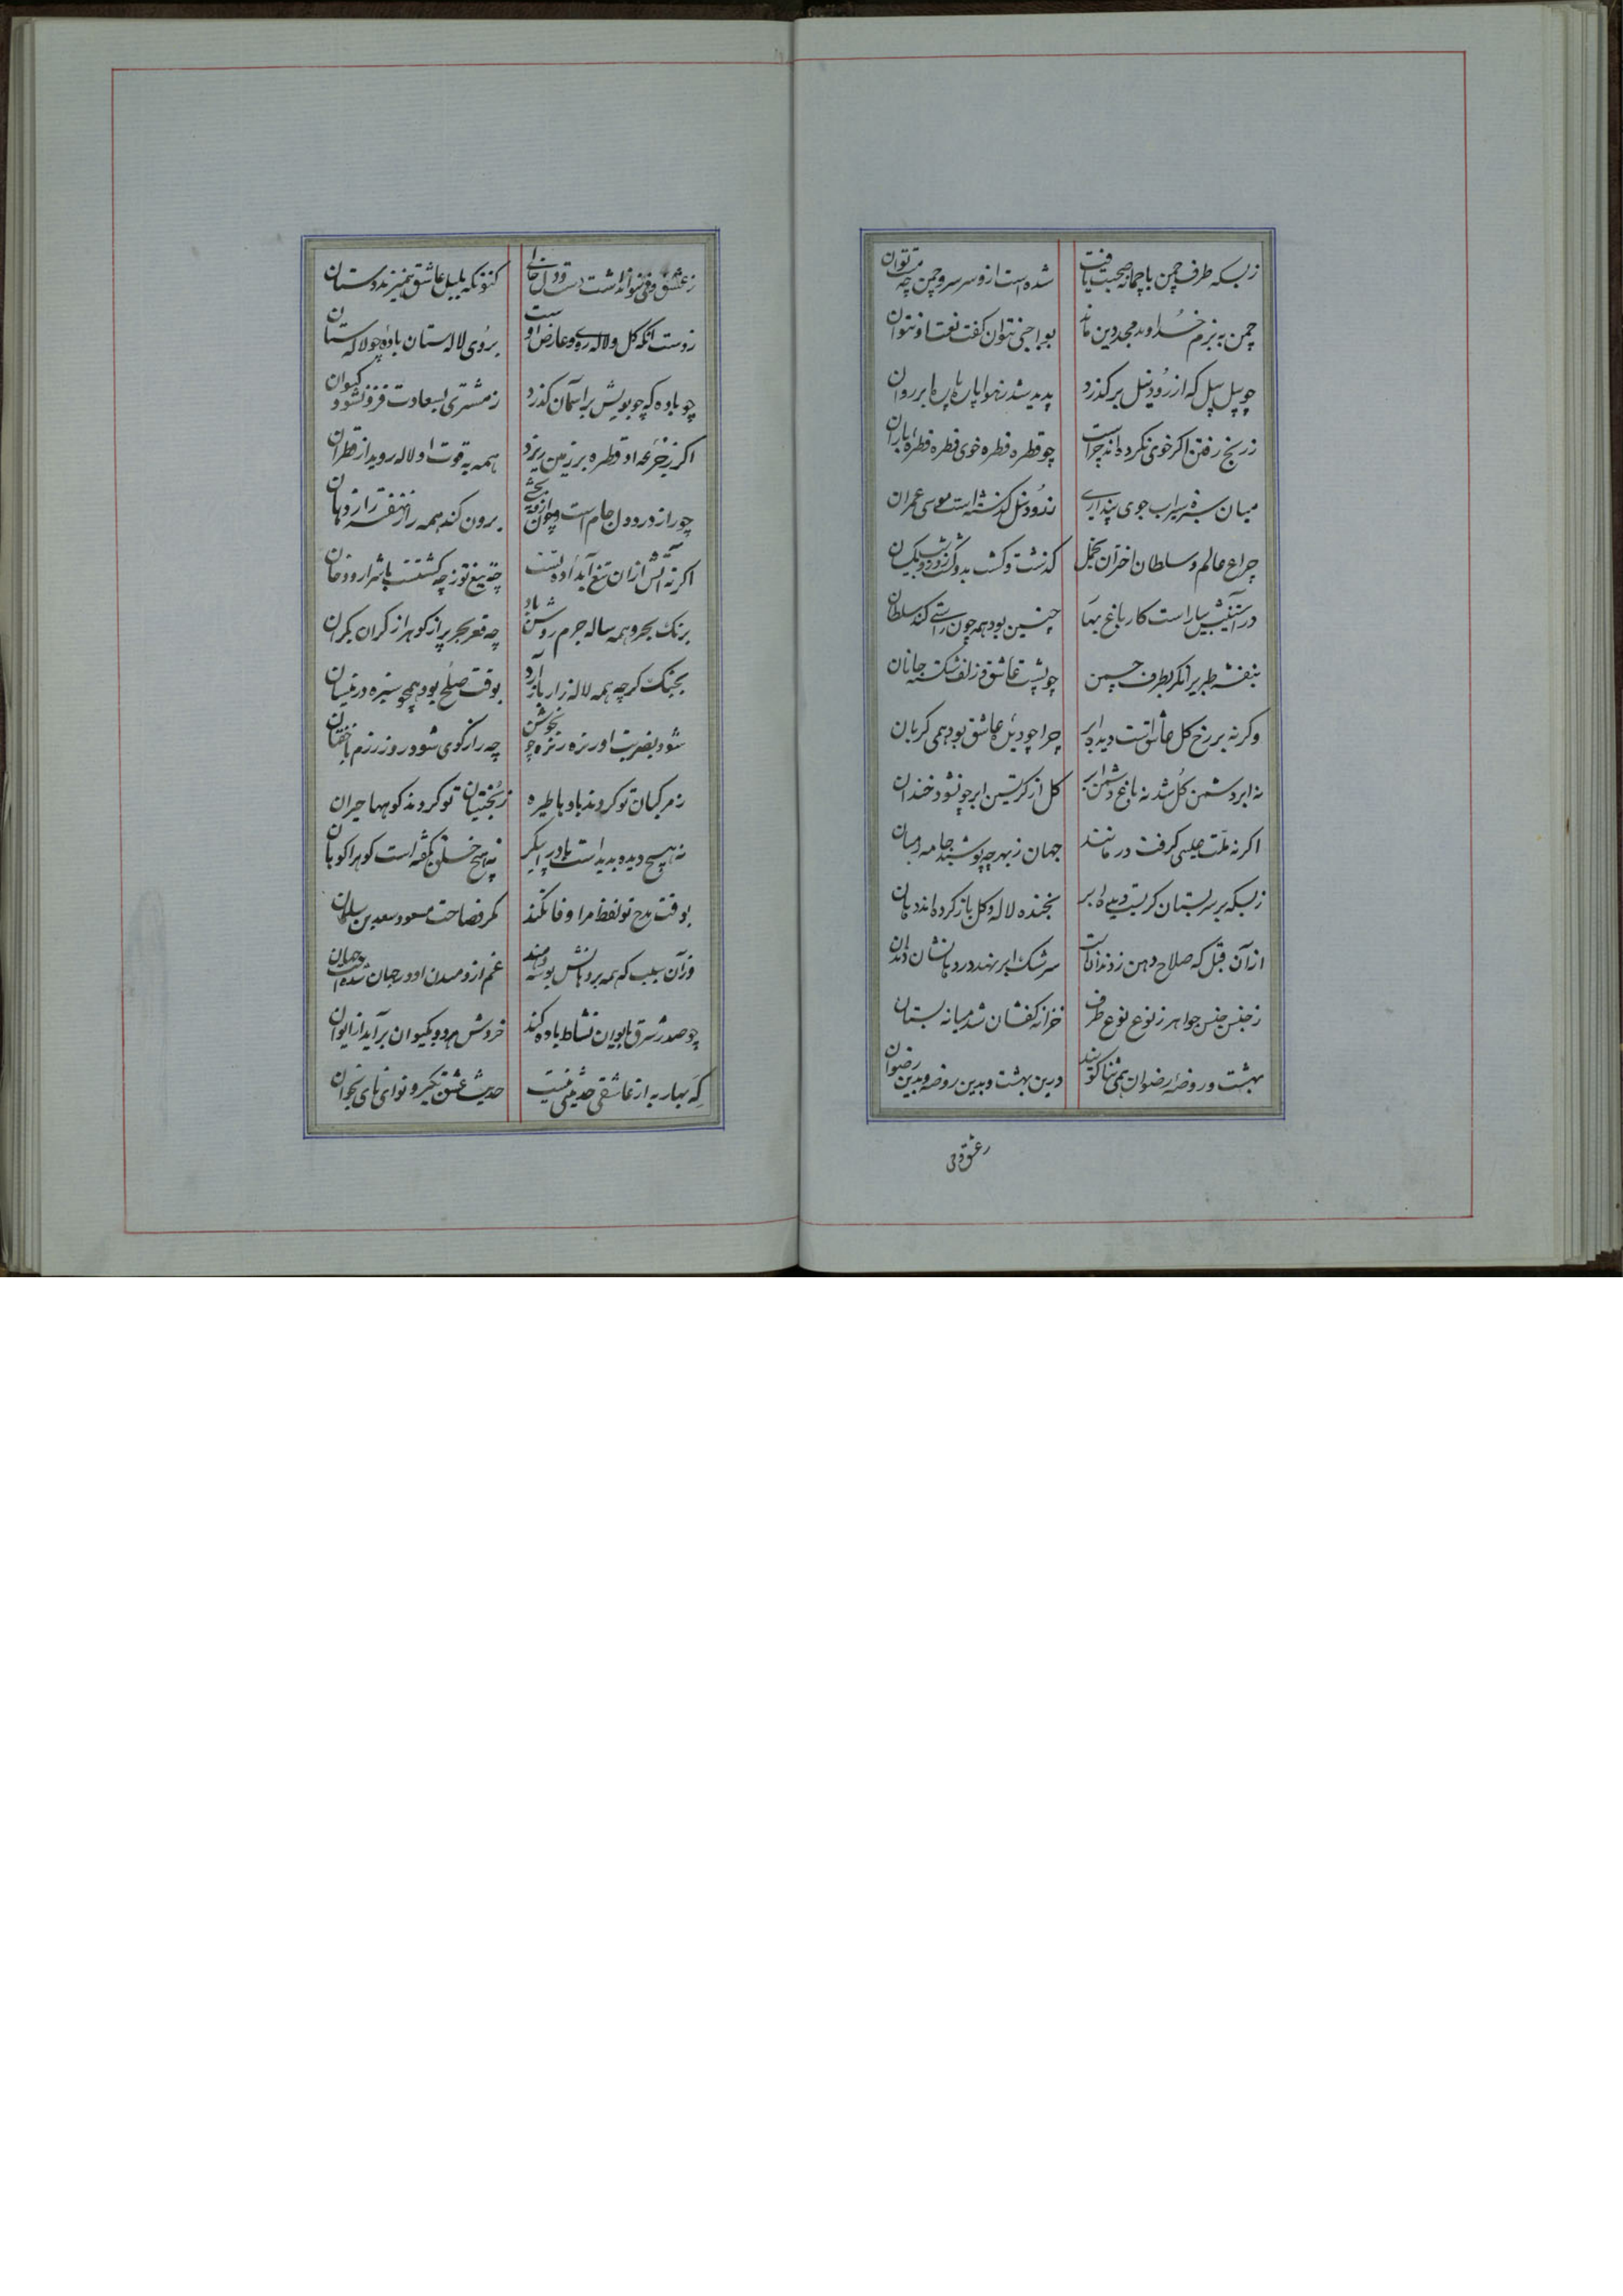 زبسکه طرف چمن باچمانه صحبت یافت شده است ازو سر سرو چمن چمان
چمن به بزم خداوند مجد دین ماند بواجبی نتوان کفت نعت او نتوان
چو پیل پیل که از رود نیل برکذرد پدید شد زهوا پاره پاره ابر روان
زرنج رفتن اکر خوی نکرده اند چراست چو قطره قطره خوی قطره قطره باران
میان سبزه سیراب جوی پنداری ز رود نیل کذشته است موسی عمران
چراغ عالم و سلطان اختران بحمل کذشت و کشت بدو
در راستیش بیاراست کار باغ بها چنین بود همه چون راستی کند سلطان
بنفشه طبری بطرف چمن چو پشت عاشق و زلف شکسته جانان
وکرنه بر رخ کل عاشق است دیده ابر چرا چو دیده عاشق بود همی کریان
نه ابر دشمن کل شد نه باغ دشمن ابر کل از کریستن ابر چون شود خندان
اکر نه ملت عیسی کرفت در مانند جهان زبهر چه پوشید جامه
زبسکه بر سر بستان کریست دیده ابر بخنده لاله و کل باز کرده اند دهان
ازآن قبل که صلاح دهن زدندانست سرشک ابر نهد در دهانشان دندان
زجنس جنس جواهر زنوع نوع طرف خزانه کفشان شد میانه بستان
بهشت و روضه رضوان همی ثنا کویند درین بهشت و بدین روضه و بدین رضوان
زعشق وقتی
زعشق وقتی نتوان داشت دست و دل خالی کنونکه بلبل عاشق همیزند دستان
زدست آنکه کل و لاله روی و عارض اوست بروی لاله ستان باده چو لالستان
چو باده که چو بویش بر آسمان کذرد زمشتری بسعادت فزون شود کیوان
اکر زجرعه او قطره بر زمین ریزد همه به قوت او لاله روید از قطران
چو راز در دل جام است و چون برون کند همه راز نهفته را ز دهان
اکر نه آتش ازان تیغ آبداده تست چه تیغ تو زچه کشتست با شرار و دخان
برنک بحر و همه ساله جرم روشن او چه قعر بحر پر از کوهر از کران بکران
بجنک کرچه همه لاله زار بار آرد بوقت صلح بود همچو سبزه در نیسان
شود بضربت او ریزه ریزه چو جوشن چه رازکوی شود روز رزم با خفتان
زمرکبان تو کردند باد با طیره زبختیان تو کردند کوهها حیران
نه هیچ دیده بدیده است باد در پیکر نه هیچ خلق بکفته است کوه را کوهان
بوقت مدح تو لفظ مرا وفا نکند مکر فصاحت مسعود سعد بن سلمان
وزآن سبب که همه بر دهانش بوسه دهند غم از
چو صدر شرق بایوان نشاط باده کند خروش مرده بکیوان برآید از ایوان
که بهار به از عاشقی حدیثی نیست حدیث عشق بکیر و نوای نای بخوان